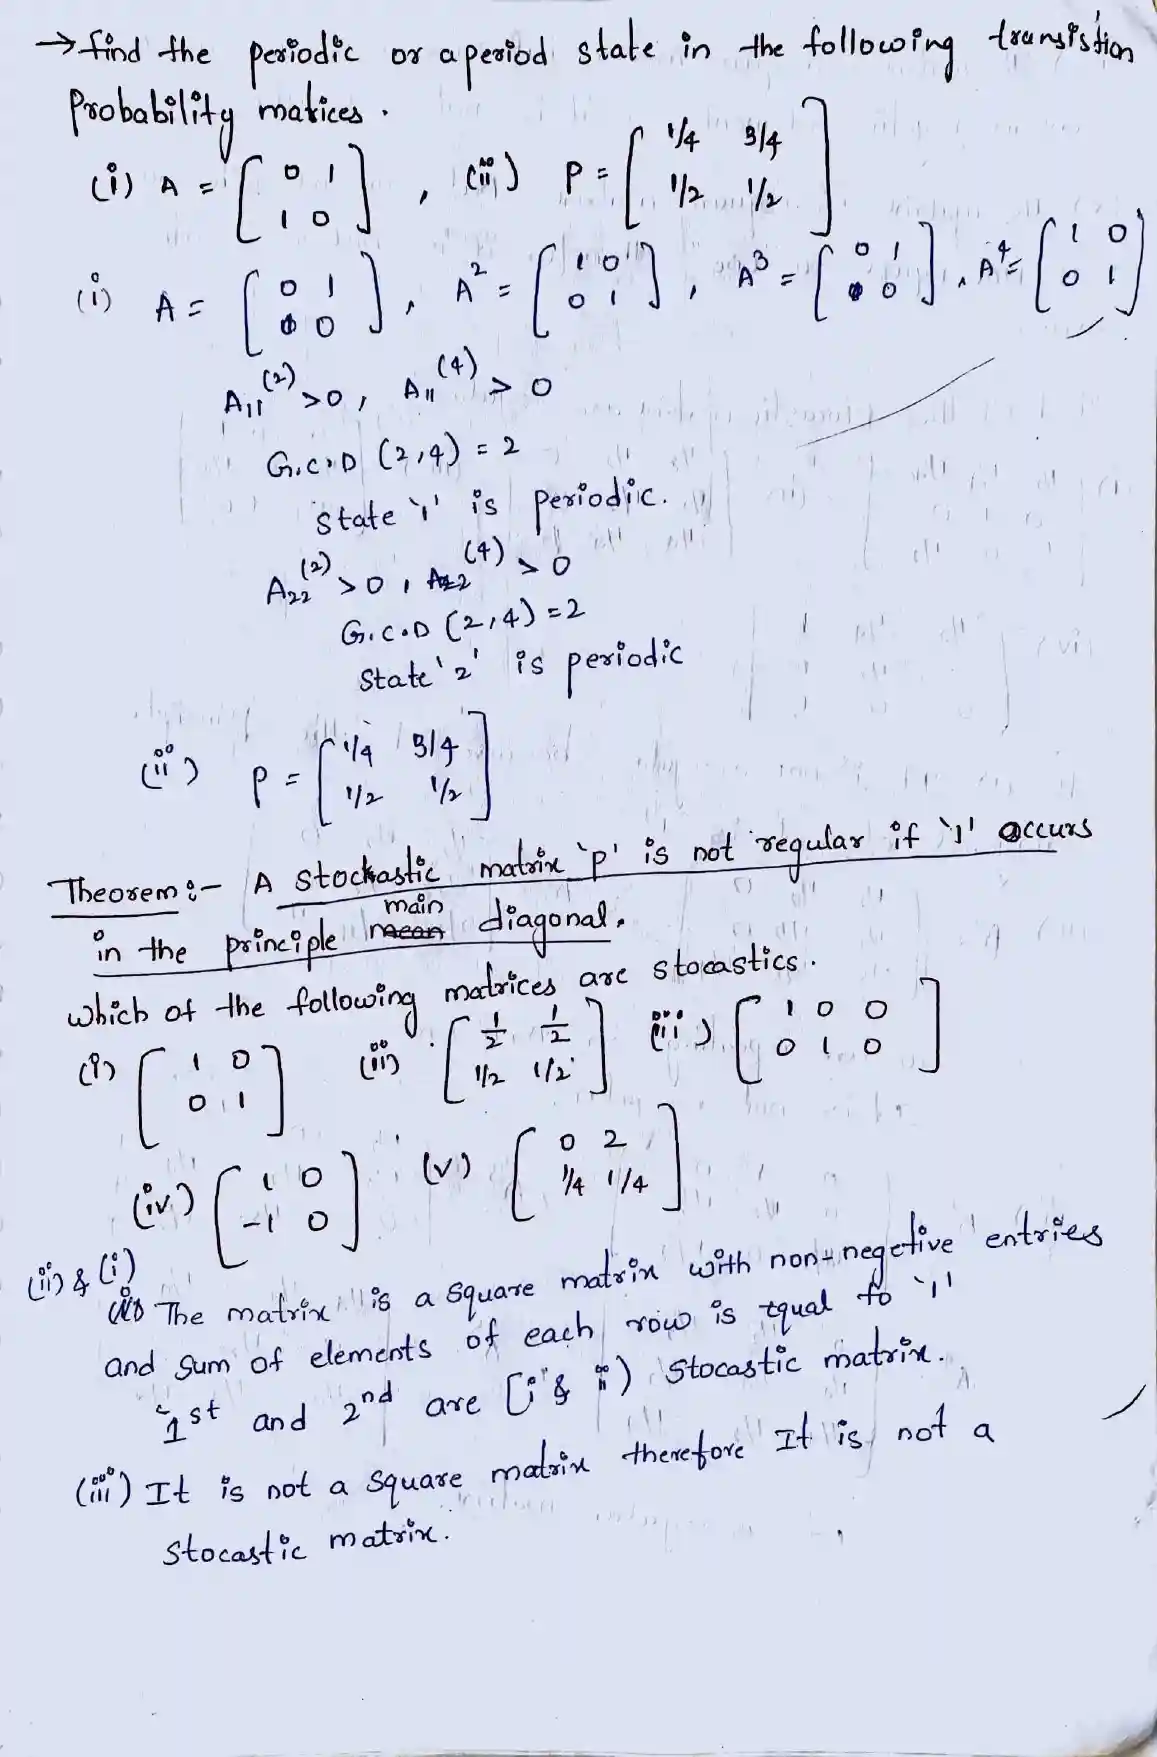 → find the periodic or aperiod state in the following transistion
Probability matices .
(i) A = [ 0 1 ; 1 0 ] , (ii) P = [ 1/4 3/4 ; 1/2 1/2 ]
(i) A = [ 0 1 ; 0 ] , A² = [ 1 0 ; 0 1 ] , A³ = [ 0 1 ; 0 ] , A⁴ = [ 1 0 ; 0 1 ]
A₁₁⁽²⁾ > 0 , A₁₁⁽⁴⁾ > 0
G.C.D (2,4) = 2
state '1' is periodic.
A₂₂⁽²⁾ > 0 , A₂₂⁽⁴⁾ > 0
G.C.D (2,4) = 2
State '2' is periodic
(ii) P = [ 1/4 3/4 ; 1/2 1/2 ]
Theorem :- A stochastic matrix 'p' is not regular if '1' occurs
in the principle mean main diagonal.
which of the following matrices are stocastics .
(i) [ 1 0 ; 0 1 ] (ii) [ 1/2 1/2 ; 1/2 1/2 ] (iii) [ 1 0 0 ; 0 1 0 ]
(iv) [ 1 0 ; -1 0 ] (v) [ 0 2 ; 1/4 1/4 ]
(ii) & (i)
The matrix is a square matrix with non-negetive entries
and sum of elements of each row is equal to '1'
1st and 2nd are (i & ii) stocastic matrix.
(iii) It is not a square matrix therefore It is not a
stocastic matrix.